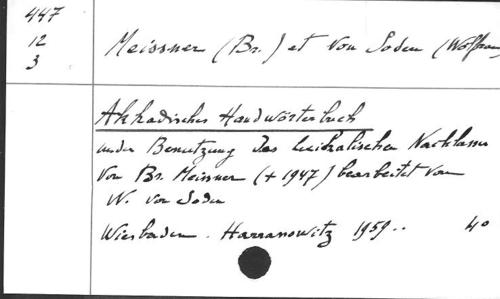 447
12
3
Meissner (Br.) et von Soden (Wolfram
Akkadisches Handwörterbuch
unter Benutzung des lexikalischen Nachlasses
von Br. Meissner (+ 1947) bearbeitet von
W. von Soden
Wiesbaden. Harrassowitz 1959.. 4°